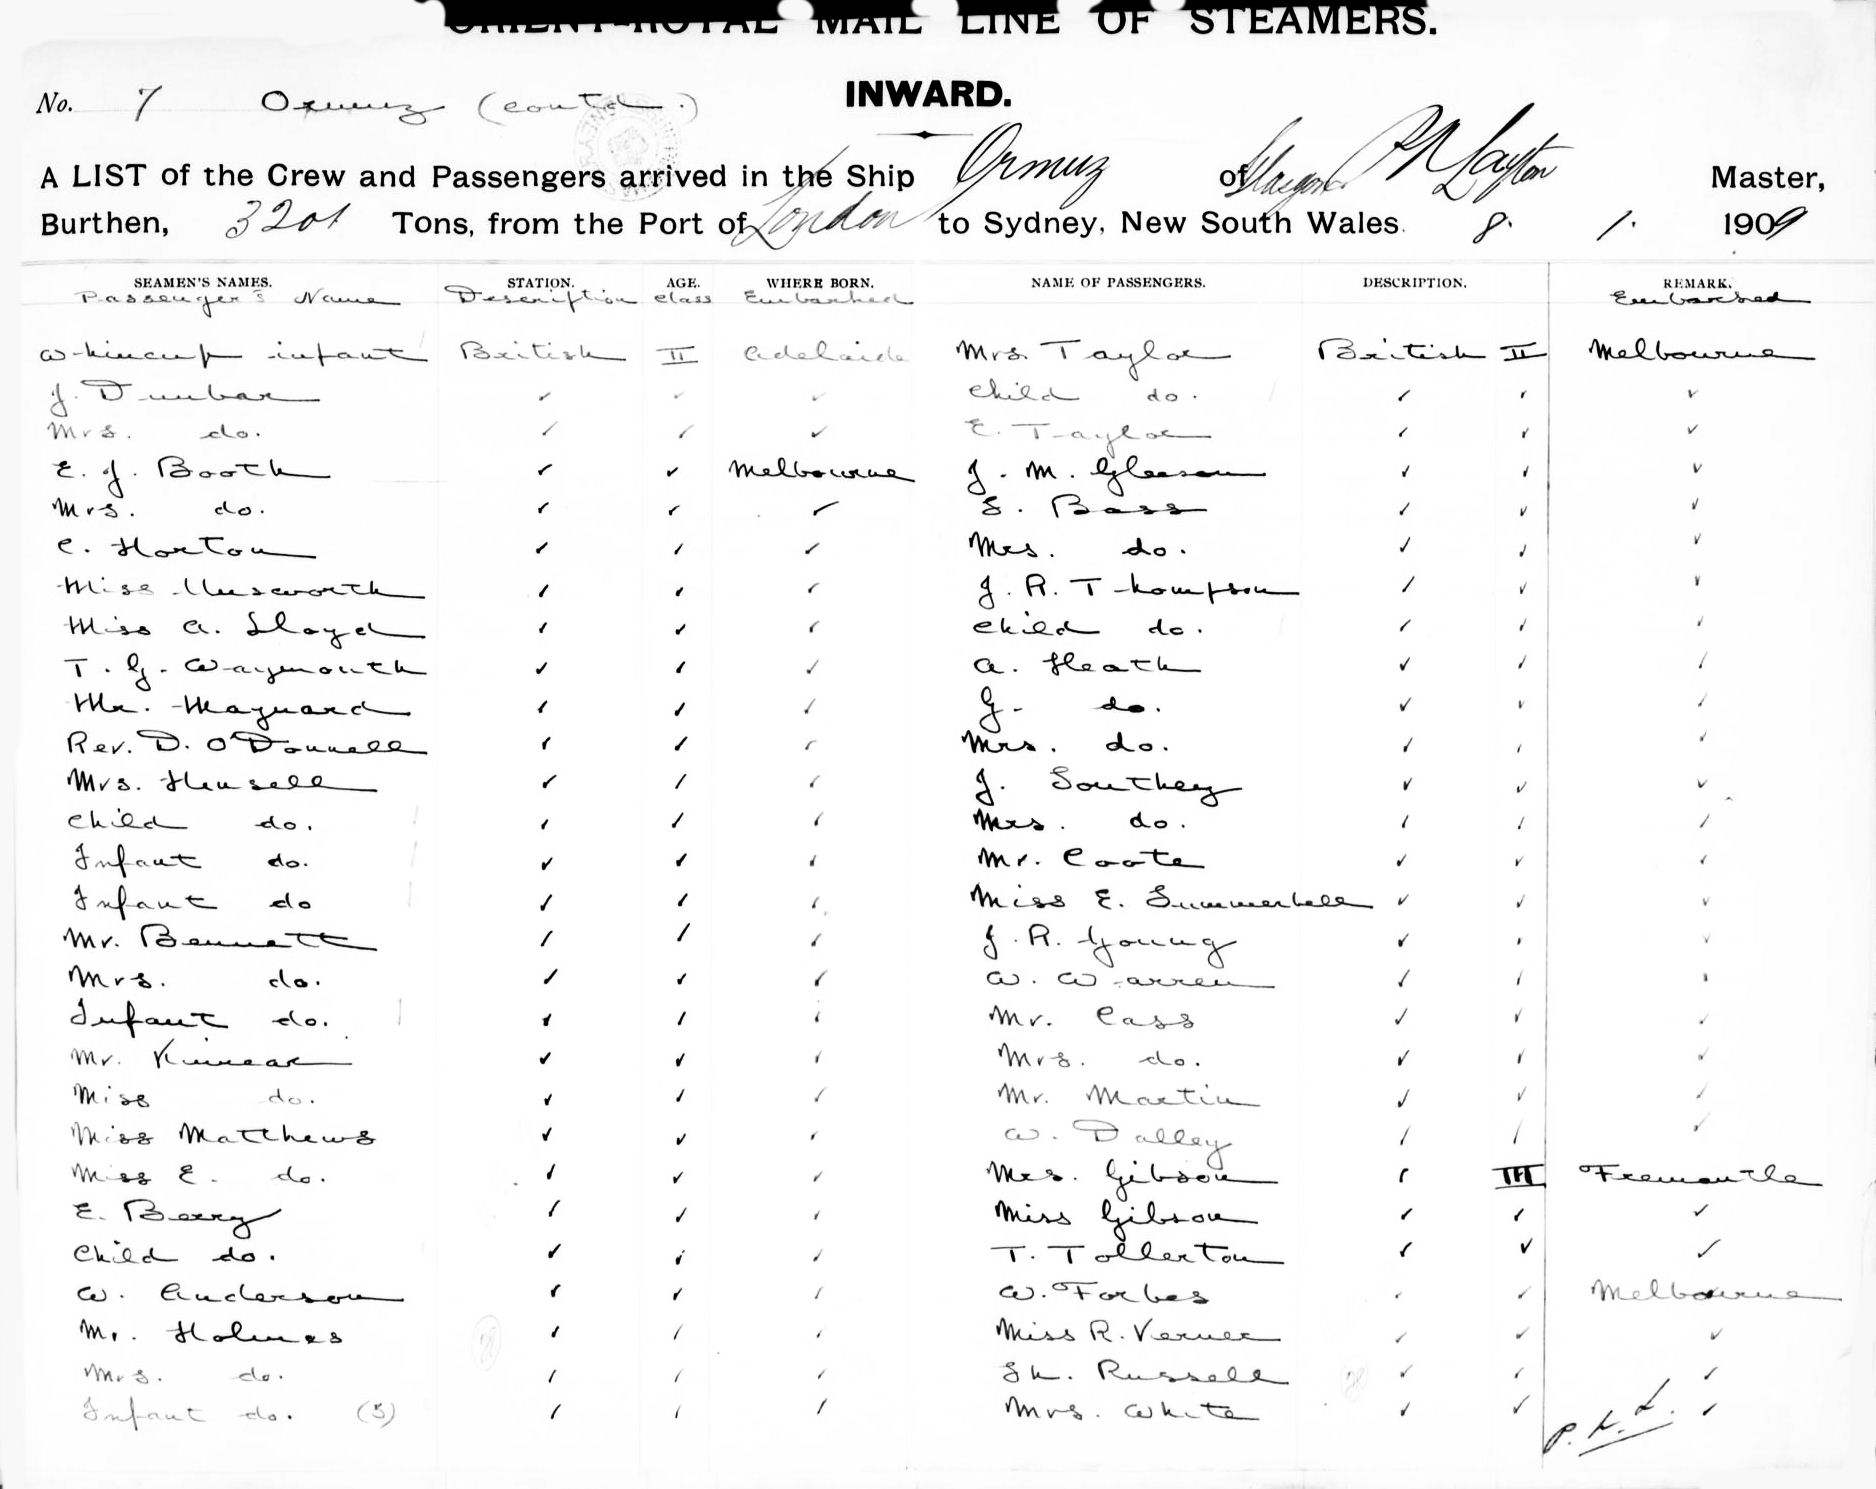 ORIENT-ROYAL MAIL LINE OF STEAMERS.
No. 7 Ormuz (contd.)
INWARD.
A LIST of the Crew and Passengers arrived in the Ship Ormuz of Glasgow Master,
Burthen, 3201 Tons, from the Port of London to Sydney, New South Wales. 8. 1. 1909
SEAMEN'S NAMES. STATION. AGE. WHERE BORN. NAME OF PASSENGERS. DESCRIPTION. REMARK.
Passenger's Name Description Class Embarked Embarked
Whincup infant British II Adelaide Mrs. Taylor British II Melbourne
J. Dunbar ✓ ✓ ✓ Child do. ✓ ✓ ✓
Mrs. do. ✓ ✓ ✓ E. Taylor ✓ ✓ ✓
E. J. Booth ✓ ✓ Melbourne J. M. Gleeson ✓ ✓ ✓
Mrs. do. ✓ ✓ ✓ S. Bass ✓ ✓ ✓
C. Horton ✓ ✓ ✓ Mrs. do. ✓ ✓ ✓
Miss Unsworth ✓ ✓ ✓ J. R. Thompson ✓ ✓ ✓
Miss A. Lloyd ✓ ✓ ✓ Child do. ✓ ✓ ✓
T. G. Waymouth ✓ ✓ ✓ A. Heath ✓ ✓ ✓
Mr. Maynard ✓ ✓ ✓ G. do. ✓ ✓ ✓
Rev. D. O'Donnell ✓ ✓ ✓ Mrs. do. ✓ ✓ ✓
Mrs. Hensell ✓ ✓ ✓ J. Southey ✓ ✓ ✓
Child do. ✓ ✓ ✓ Mrs. do. ✓ ✓ ✓
Infant do. ✓ ✓ ✓ Mr. Coote ✓ ✓ ✓
Infant do ✓ ✓ ✓ Miss E. Summerbell ✓ ✓ ✓
Mr. Bennett ✓ ✓ ✓ J. R. Young ✓ ✓ ✓
Mrs. do. ✓ ✓ ✓ W. Warren ✓ ✓ ✓
Infant do. ✓ ✓ ✓ Mr. Cass ✓ ✓ ✓
Mr. Kinnear ✓ ✓ ✓ Mrs. do. ✓ ✓ ✓
Miss do. ✓ ✓ ✓ Mr. Martin ✓ ✓ ✓
Miss Matthews ✓ ✓ ✓ W. Dalley ✓ ✓ ✓
Miss E. do. ✓ ✓ ✓ Mrs. Gibson ✓ III Fremantle
E. Berry ✓ ✓ ✓ Miss Gibson ✓ ✓ ✓
Child do. ✓ ✓ ✓ T. Tollerton ✓ ✓ ✓
W. Anderson ✓ ✓ ✓ W. Forbes ✓ ✓ Melbourne
Mr. Holmes ✓ ✓ ✓ Miss R. Verner ✓ ✓ ✓
Mrs. do. ✓ ✓ ✓ Russell ✓ ✓ ✓
Infant do. (3) ✓ ✓ ✓ Mrs. White ✓ ✓ ✓